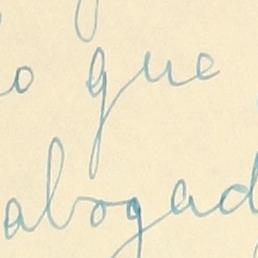 o que
abogad